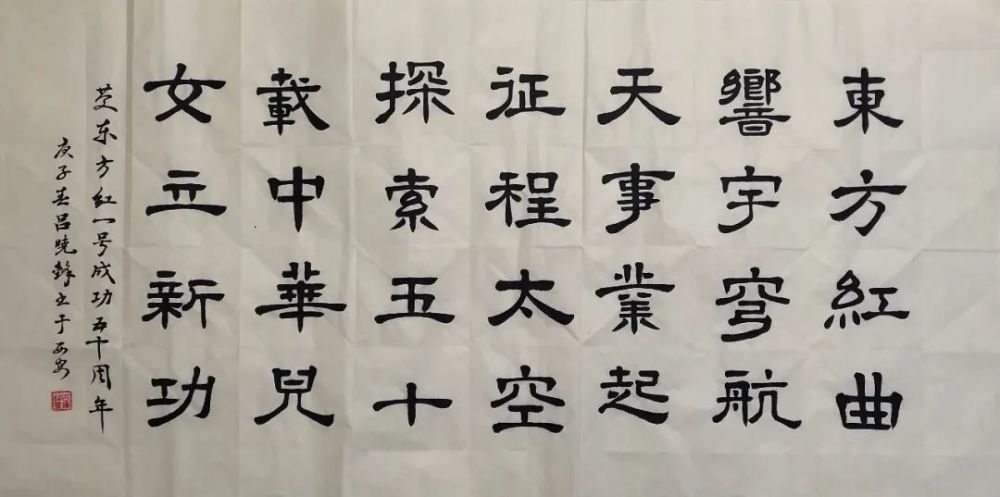 東方紅曲
響宇穹航
天事業起
征程太空
探索五十
載中華兒
女立新功
东方红一号成功五十周年
庚子春吕晓锋书于西安